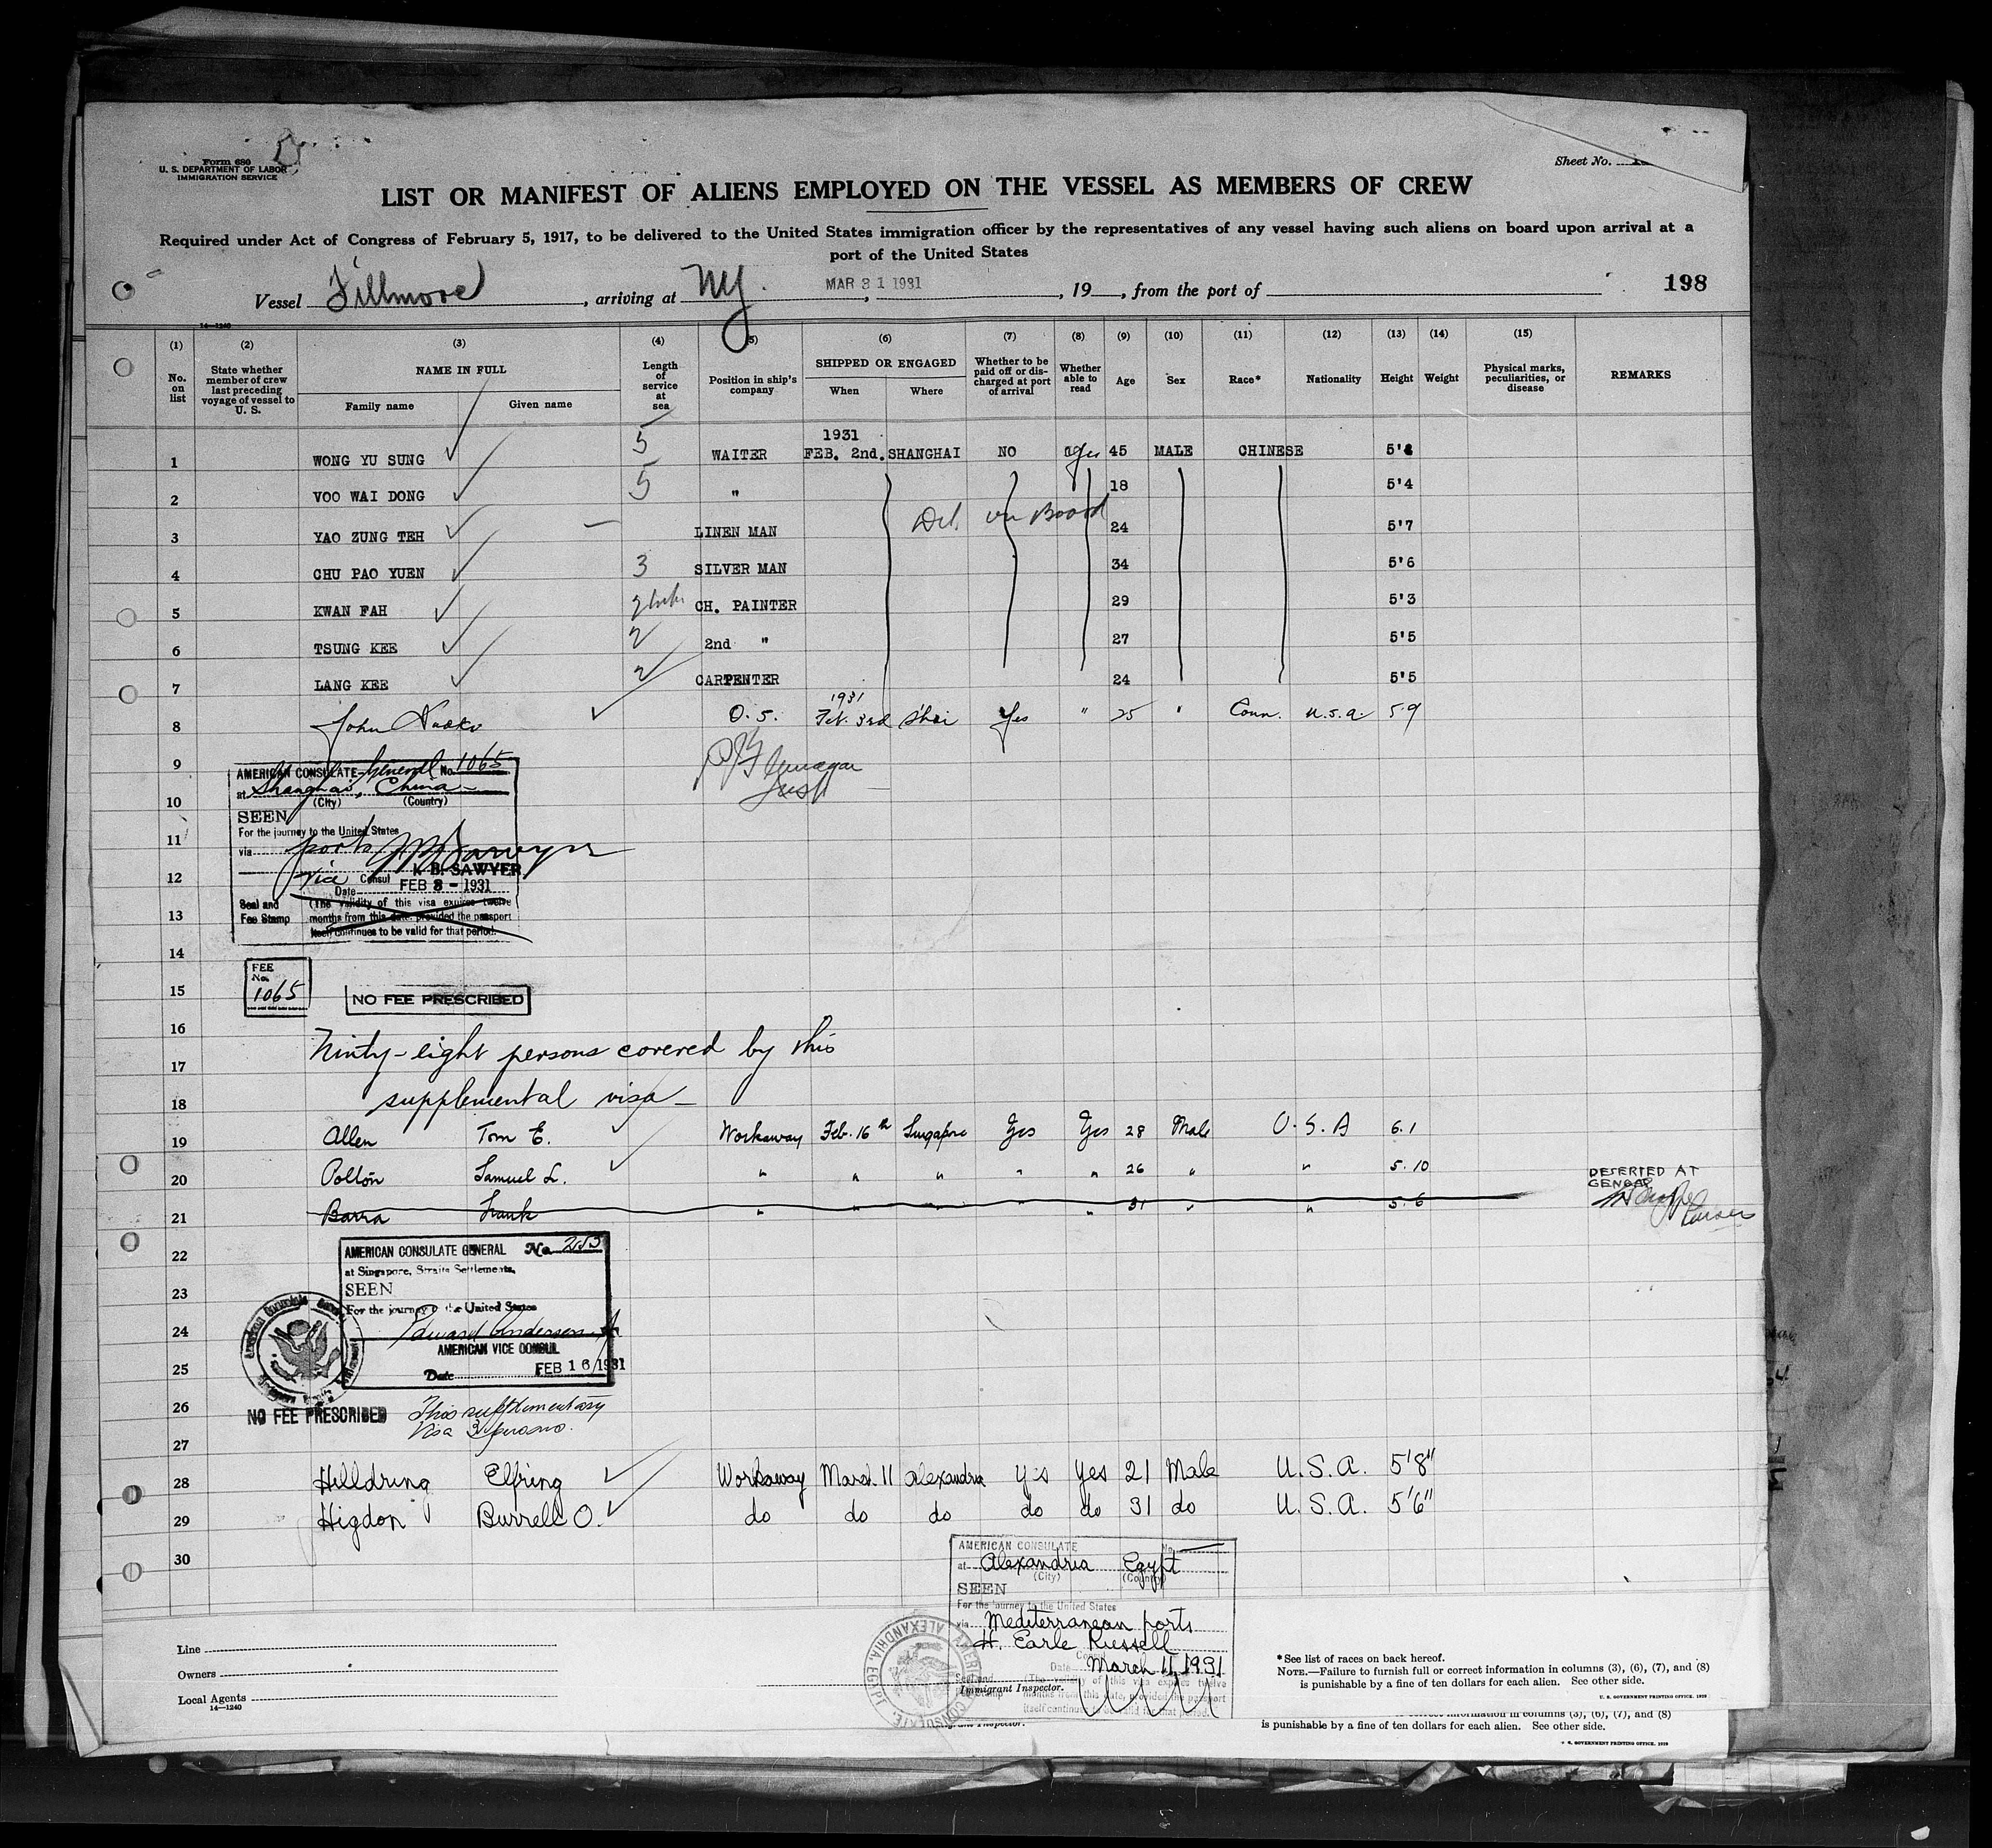 Form 680
U. S. DEPARTMENT OF LABOR
IMMIGRATION SERVICE
Sheet No.
LIST OR MANIFEST OF ALIENS EMPLOYED ON THE VESSEL AS MEMBERS OF CREW
Required under Act of Congress of February 5, 1917, to be delivered to the United States immigration officer by the representatives of any vessel having such aliens on board upon arrival at a
port of the United States
Vessel Fillmore, arriving at NY. MAR 31 1931, 19__, from the port of 198
14—1240
(1) (2) (3) (4) (5) (6) (7) (8) (9) (10) (11) (12) (13) (14) (15)
No. on list
State whether member of crew last preceding voyage of vessel to U. S.
NAME IN FULL
Family name Given name
Length of service at sea
Position in ship's company
SHIPPED OR ENGAGED
When Where
Whether to be paid off or discharged at port of arrival
Whether able to read
Age Sex Race* Nationality Height Weight
Physical marks, peculiarities, or disease
REMARKS
1931
1 WONG YU SUNG 5 WAITER FEB. 2nd. SHANGHAI NO yes 45 MALE CHINESE
2 VOO WAI DONG 5 " 18 5'4
3 YAO ZUNG TEH LINEN MAN Det. on Board 24 5'7
4 CHU PAO YUEN 3 SILVER MAN 34 5'6
5 KWAN FAH CH. PAINTER 29 5'3
6 TSUNG KEE 2 2nd " 27 5'5
7 LANG KEE 2 CARPENTER 24 5'5
1931
8 John O.S. Feb. 3rd S'hai Yes " 25 " Conn. U.S.A. 5.9
9
AMERICAN CONSULATE-General No. 1065
at Shanghai, China
(City) (Country)
10
SEEN
For the journey to the United States
11
via ports
12
via Consul K. B. SAWYER
Date FEB 3 - 1931
Seal and Fee Stamp
(The validity of this visa expires twelve
13
months from this date provided the passport
itself continues to be valid for that period.
14
FEE
No.
1065
15
NO FEE PRESCRIBED
16
Ninty-eight persons covered by this
17
supplemental visa
18
19 Allen Tom E. Workaway Feb. 16th Singapore Yes Yes 28 Male U.S.A 6.1
20 Polton Samuel L. " " " " " 26 " " 5.10
DESERTED AT
GENOA
21 Barra Frank " " " " " 31 " " 5.6
Purser
22
AMERICAN CONSULATE GENERAL No.
at Singapore, Straits Settlements,
23
SEEN
For the journey to the United States
24
Edward Anderson Jr
AMERICAN VICE CONSUL
25
Date FEB 16 1931
26
NO FEE PRESCRIBED
This supplementary
Visa 3 persons.
27
28 Hilldring Elfring Workaway March 11 Alexandria yes yes 21 Male U.S.A. 5'8"
29 Higdon Burrell O. do do do do do 31 do U.S.A. 5'6"
30
AMERICAN CONSULATE No.
at Alexandria Egypt
(City) (Country)
SEEN
For the journey to the United States
via Mediterranean ports
H. Earle Russell
Consul
Date March 11, 1931
Seal and
(The validity of this visa expires twelve
months from this date, provided the passport
itself continues to be valid for that period.
AMERICAN CONSULATE, ALEXANDRIA, EGYPT
Line
Owners
Local Agents
14—1240
Immigrant Inspector.
*See list of races on back hereof.
NOTE.—Failure to furnish full or correct information in columns (3), (6), (7), and (8)
is punishable by a fine of ten dollars for each alien. See other side.
U. S. GOVERNMENT PRINTING OFFICE. 1928
correct information in columns (3), (6), (7), and (8)
is punishable by a fine of ten dollars for each alien. See other side.
U. S. GOVERNMENT PRINTING OFFICE. 1928